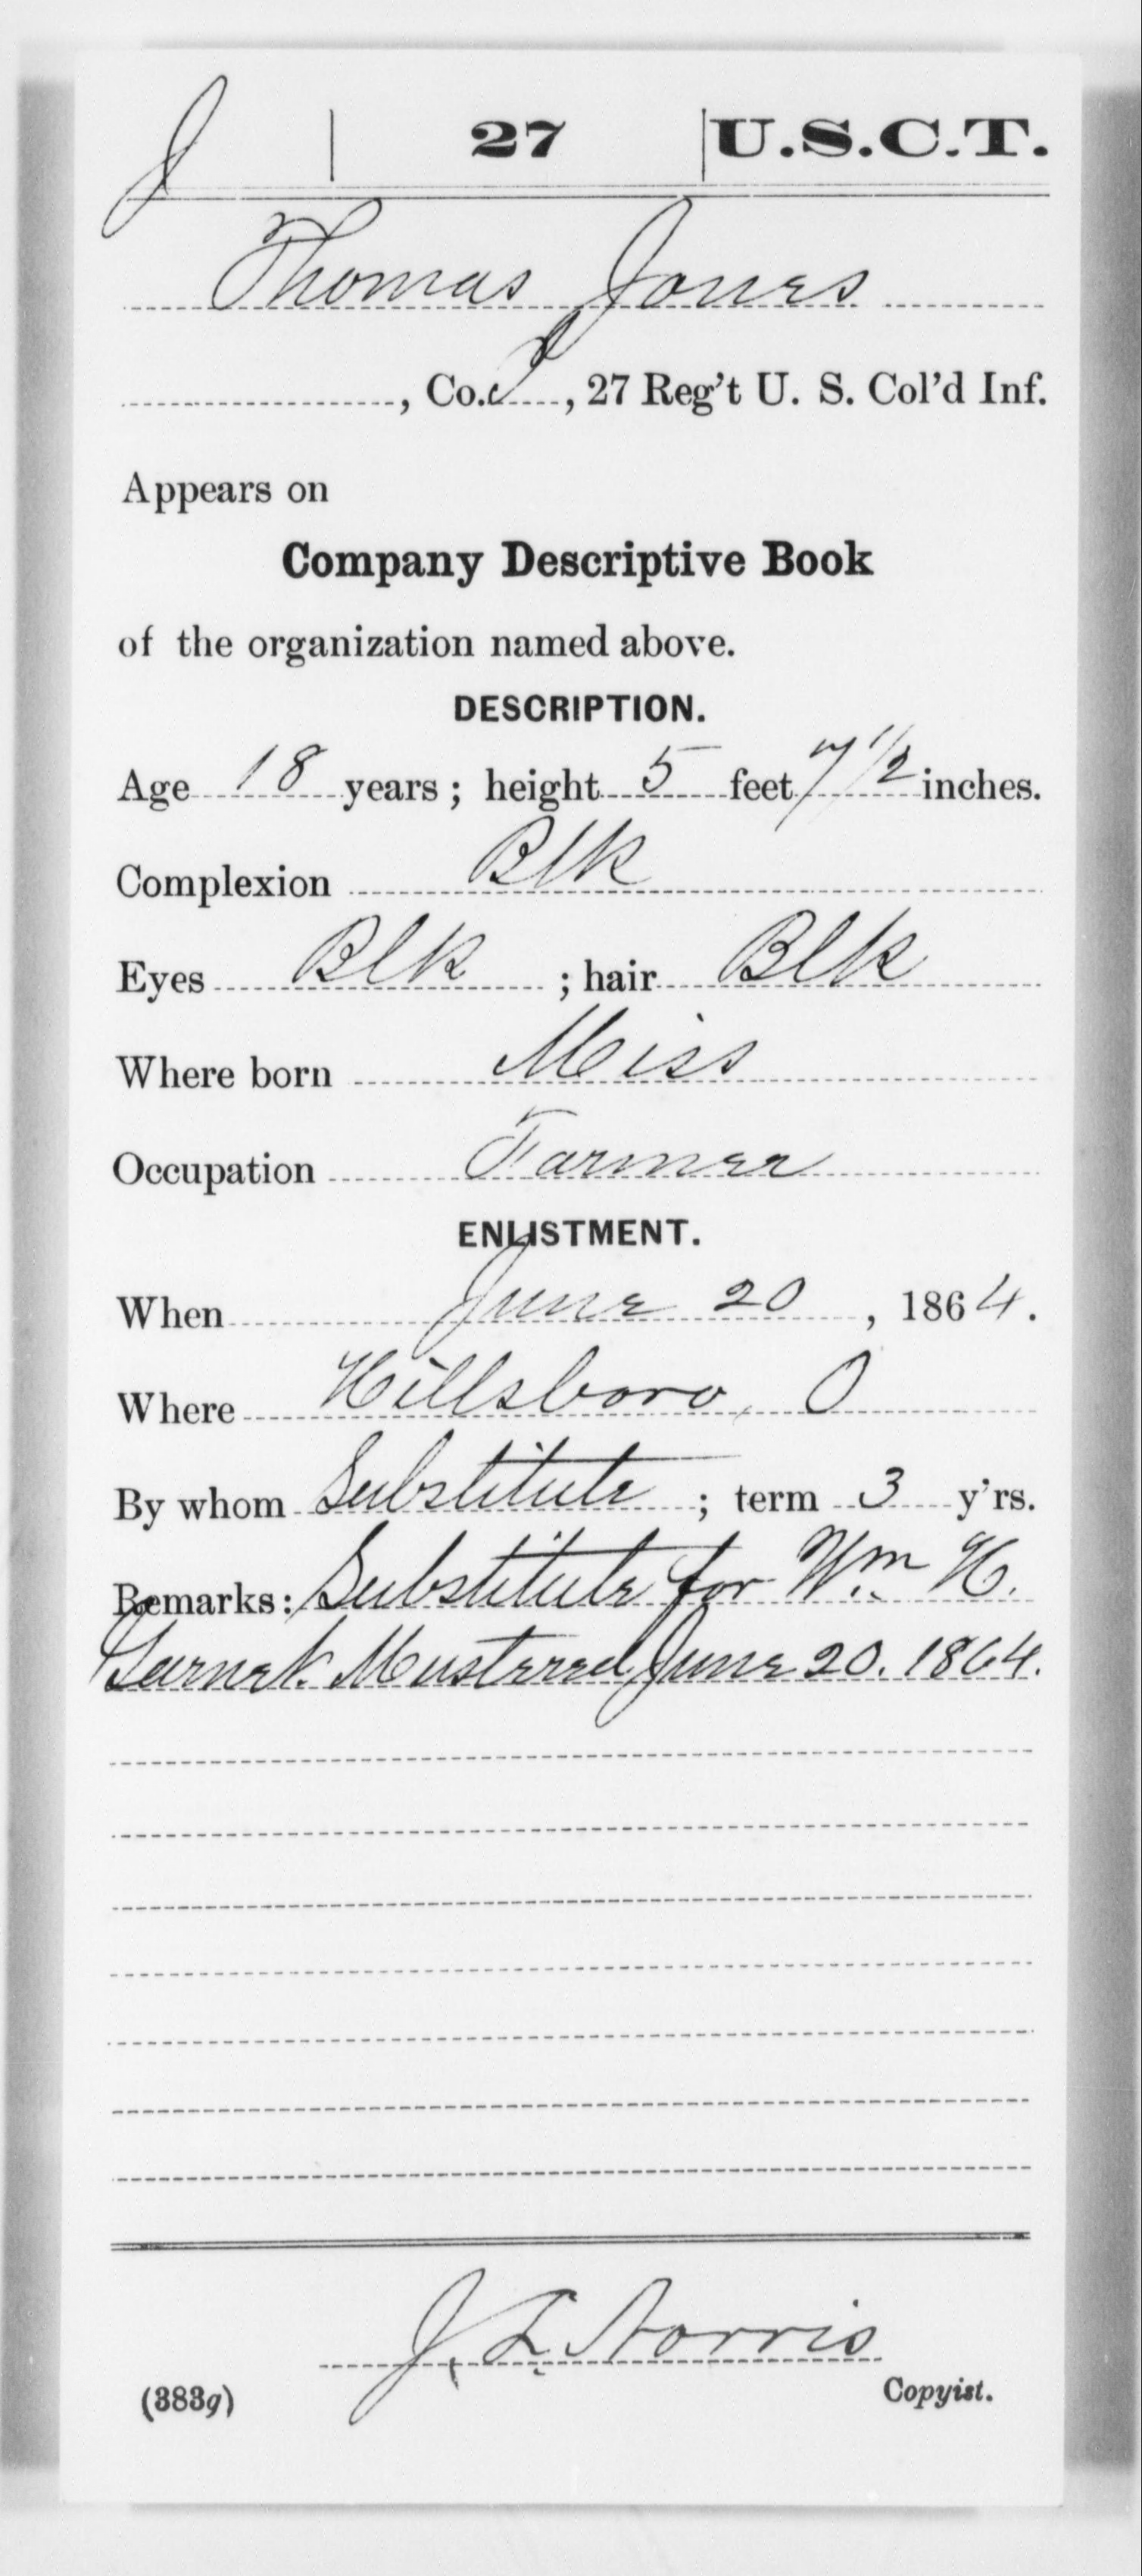 J | 27 | U.S.C.T.
Thomas Jones
, Co. I, 27 Reg't U. S. Col'd Inf.
Appears on
Company Descriptive Book
of the organization named above.
DESCRIPTION.
Age 18 years; height 5 feet 7 1/2 inches.
Complexion Blk
Eyes Blk ; hair Blk
Where born Miss
Occupation Farmer
ENLISTMENT.
When June 20, 1864.
Where Hillsboro, O
By whom Substitute; term 3 y'rs.
Remarks: Substitute for Wm H.
Mustered June 20. 1864.
J. L. Norris
(383g) Copyist.